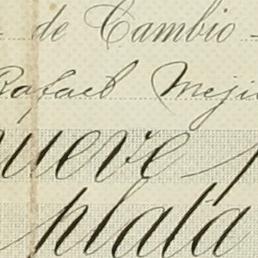 - de Cambio -
Rafael Mejí
nueve p
plata